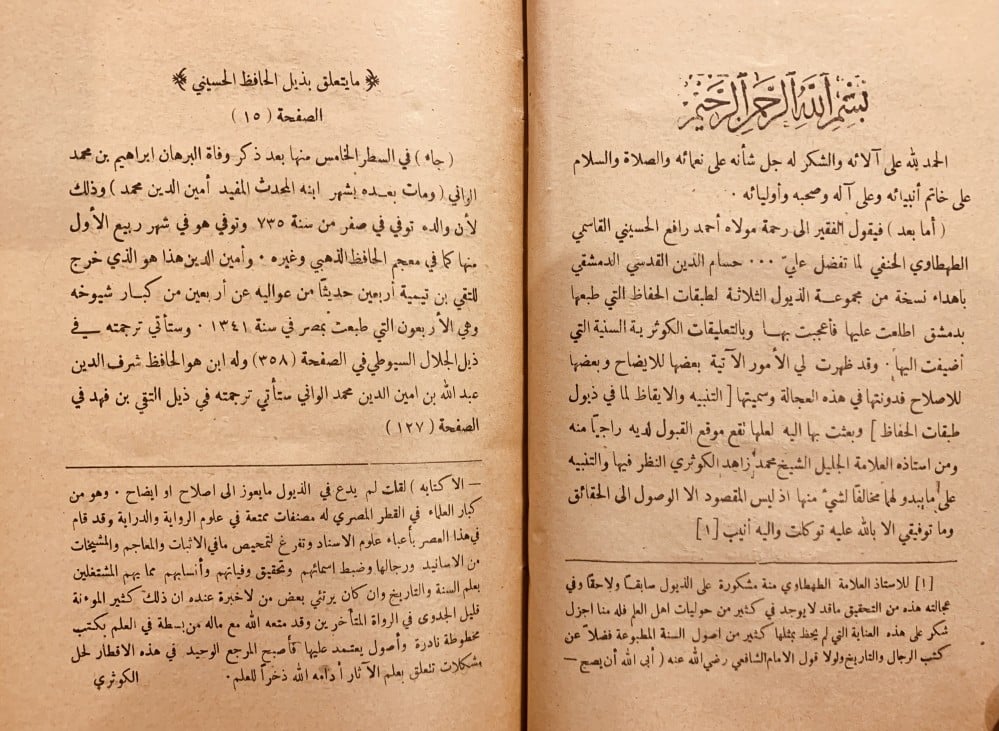 بسم الله الرحمن الرحيم
الحمد لله على آلائه والشكر له جل شأنه على نعمائه والصلاة والسلام
على خاتم أنبيائه وعلى آله وصحبه وأوليائه .
( أما بعد ) فيقول الفقير الى رحمة مولاه أحمد رافع الحسيني القاسمي
الطهطاوي الحنفي لما تفضل عليّ ... حسام الدين القدسي الدمشقي
باهداء نسخة من مجموعة الذيول الثلاثة لطبقات الحفاظ التي طبعها
بدمشق اطلعت عليها فأعجبت بها وبالتعليقات الكوثرية السنية التي
أضيفت اليها . وقد ظهرت لي الأمور الآتية بعضها للايضاح وبعضها
للاصلاح فدونتها في هذه العجالة وسميتها [ التنبيه والايقاظ لما في ذيول
طبقات الحفاظ ] وبعثت بها اليه لعلها تقع موقع القبول لديه راجياً منه
ومن استاذه العلامة الجليل الشيخ محمد زاهد الكوثري النظر فيها والتنبيه
على مايبدو لهما مخالفاً لشيء منها اذ ليس المقصود الا الوصول الى الحقائق
وما توفيقي الا بالله عليه توكلت واليه أنيب [١]
[١] للاستاذ العلامة الطهطاوي منة مشكورة على الذيول سابقاً ولاحقاً وفي
عجالته هذه من التحقيق ماقد لايوجد في كثير من حوليات اهل العلم فله منا اجزل
شكر على هذه العناية التي لم يحظ بمثلها كثير من اصول السنة المطبوعة فضلاً عن
كتب الرجال والتاريخ ولولا قول الامام الشافعي رضي الله عنه ( أبى الله أن يصح —
﴿ مايتعلق بذيل الحافظ الحسيني ﴾
الصفحة ( ١٥ )
( جاء ) في السطر الخامس منها بعد ذكر وفاة البرهان ابراهيم بن محمد
الواني ( ومات بعده بشهر ابنه المحدث المفيد أمين الدين محمد ) وذلك
لأن والده توفي في صفر من سنة ٧٣٥ وتوفي هو في شهر ربيع الأول
منها كما في معجم الحافظ الذهبي وغيره . وأمين الدين هذا هو الذي خرج
للتقي بن تيمية أربعين حديثاً من عواليه عن أربعين من كبار شيوخه
وهي الأربعون التي طبعت بمصر في سنة ١٣٤١ . وستأتي ترجمته في
ذيل الجلال السيوطي في الصفحة (٣٥٨) وله ابن هو الحافظ شرف الدين
عبد الله بن امين الدين محمد الواني ستأتي ترجمته في ذيل التقي بن فهد في
الصفحة ( ١٢٧ )
— الا كتابه ) لقلت لم يدع في الذيول مايعوز الى اصلاح او ايضاح . وهو من
كبار العلماء في القطر المصري له مصنفات ممتعة في علوم الرواية والدراية وقد قام
في هذا العصر بأعباء علوم الاسناد وتفرغ لتمحيص مافي الاثبات والمعاجم والمشيخات
من الاسانيد ورجالها وضبط اسمائهم وتحقيق وفياتهم وأنسابهم مما يهم المشتغلين
بعلم السنة والتاريخ وان كان يرتئي بعض من لاخبرة عنده ان ذلك كثير الموءنة
قليل الجدوى في الرواة المتأخرين وقد متعه الله مع ماله من بسطة في العلم بكتب
مخطوطة نادرة وأصول يعتمد عليها فأصبح المرجع الوحيد في هذه الاقطار لحل
مشكلات تتعلق بعلم الآثار أدامه الله ذخراً للعلم . الكوثري